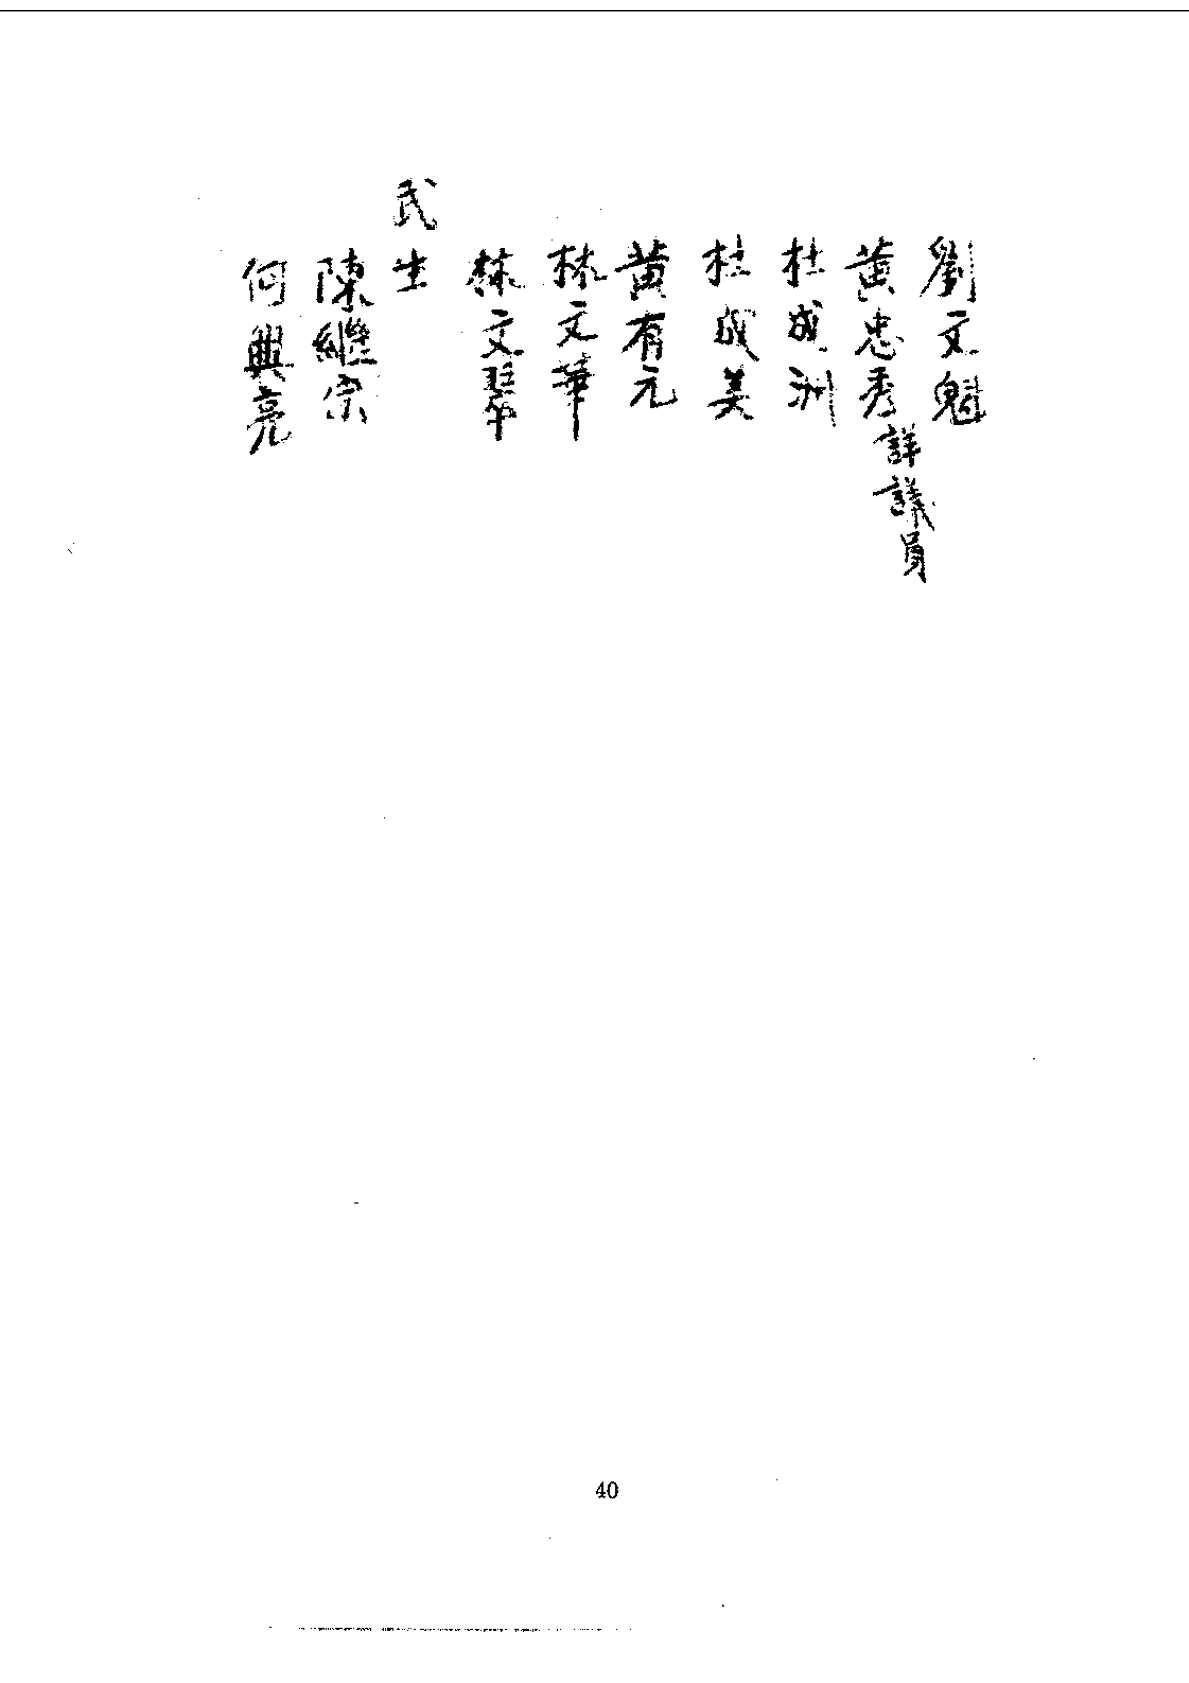 劉文魁
黃忠秀詳議員
杜成洲
杜成美
黃有元
林文華
林文翠
民生
陳繼宗
何興亮
40